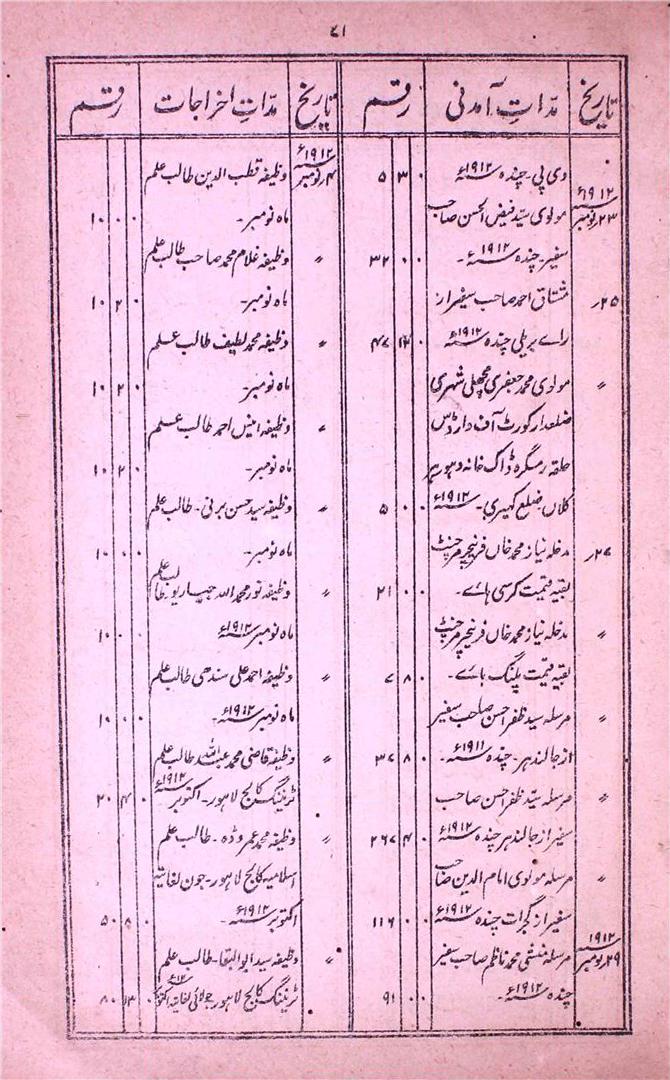 ۴۱
تاریخ مدّاتِ آمدنی رقم تاریخ مدّاتِ اخراجات رقم
وی پی۔ چندہ ۱۹۱۲ء ۰ ۳ ۵
۱۹۱۲ء ۲۳ نومبر مولوی سیّد فیض الحسن صاحب
سفیر۔ چندہ ۱۹۱۲ء۔ ۰ ۰ ۳۲
۲۵ر مشتاق احمد صاحب سفیر از
راے بریلی چندہ ۱۹۱۲ء ۰ ۱۲ ۴۷
〃 مولوی محمد جعفری مچھلی شہری
ضلعدار کورٹ آف وارڈس
حلقہ رمگرہ ڈاک خانہ دہورہر
کلاں ضلع کہیری۔ ۱۹۱۲ء ۰ ۰ ۵
۲۷ر مدخلہ نیاز محمد خاں فرنیچر مرچنٹ
بقیہ قیمت کرسی ہائے۔ ۰ ۰ ۲۱
〃 مدخلہ نیاز محمد خاں فرنیچر مرچنٹ
بقیہ قیمت پلنگ ہائے۔ ۰ ۸ ۷
〃 مرسلہ سید ظفر احسن صاحب سفیر
از جالندہر۔ چندہ ۱۹۱۱ء۔ ۰ ۸ ۳۷
〃 مرسلہ سیّد ظفر احسن صاحب
سفیر از جالندہر چندہ ۱۹۱۲ء ۰ ۴ ۲۶۷
〃 مرسلہ مولوی امام الدین صاحب
سفیر از گجرات چندہ ۱۹۱۲ء ۰ ۰ ۱۱۶
۱۹۱۲ ۲۹ نومبر مرسلہ منشی محمد ناظم صاحب سفیر
چندہ ۱۹۱۲ء۔ ۰ ۰ ۹۱
۱۹۱۲ء ۴ نومبر وظیفہ قطب الدین طالب علم
ماہ نومبر۔ ۰ ۰ ۱۰
〃 وظیفہ غلام محمد صاحب طالب علم
ماہ نومبر۔ ۰ ۲ ۱۰
〃 وظیفہ محمد لطیف طالب علم
ماہ نومبر۔ ۰ ۲ ۱۰
〃 وظیفہ انیس احمد طالب علم
ماہ نومبر۔ ۰ ۲ ۱۰
〃 وظیفہ سید حسن برنی۔ طالب علم
ماہ نومبر۔ ۰ ۰ ۱۰
〃 وظیفہ نور محمد اللہ طالب علم
ماہ نومبر ۱۹۱۲ء ۰ ۰ ۱۰
〃 وظیفہ احمد علی سندھی طالب علم
ماہ نومبر ۱۹۱۲ء۔ ۰ ۰ ۱۰
〃 وظیفہ قاضی محمد عبد اللہ طالب علم
ٹریننگ کالج لاہور۔ اکتوبر ۱۹۱۲ء ۰ ۴ ۲۰
〃 وظیفہ محمد عمر وڈہ۔ طالب علم
اسلامیہ کالج لاہور۔ جون لغایتہ
اکتوبر ۱۹۱۲ء۔ ۰ ۸ ۵۰
〃 وظیفہ سید ابوالبقا۔ طالب علم
ٹریننگ کالج لاہور جولائی لغایتہ اکتوبر ۰ ۱۳ ۸۰